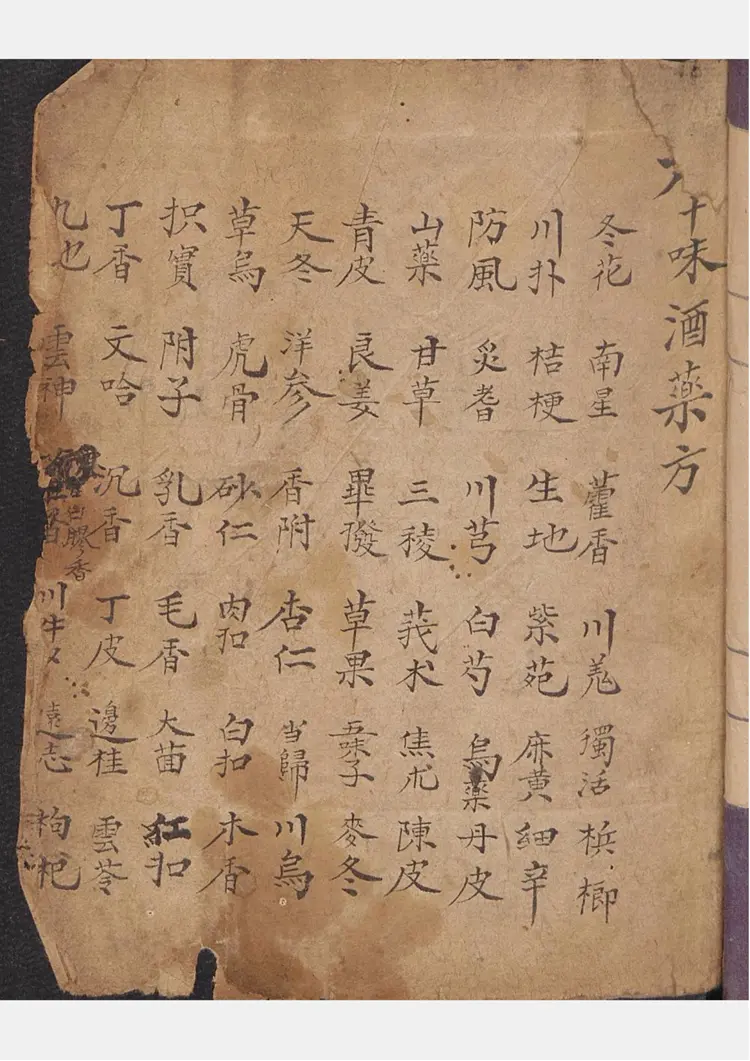 十味酒藥方
冬花 南星 藿香 川羗 獨活 梹榔
川扑 桔梗 生地 紫苑 麻黄 細辛
防風 炙耆 川芎 白芍 烏藥 丹皮
山藥 甘草 三稜 莪术 焦朮 陳皮
青皮 良姜 畢撥 草果 五味子 麥冬
天冬 洋参 香附 杏仁 当歸 川烏
草烏 虎骨 砂仁 肉扣 白扣 木香
枳實 附子 乳香 毛香 大茴 紅扣
丁香 文哈 沉香 丁皮 邊桂 雲苓
九也 雲神 膠香 川牛 遠志 枸杞